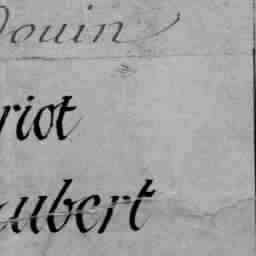 douin
riot
aubert